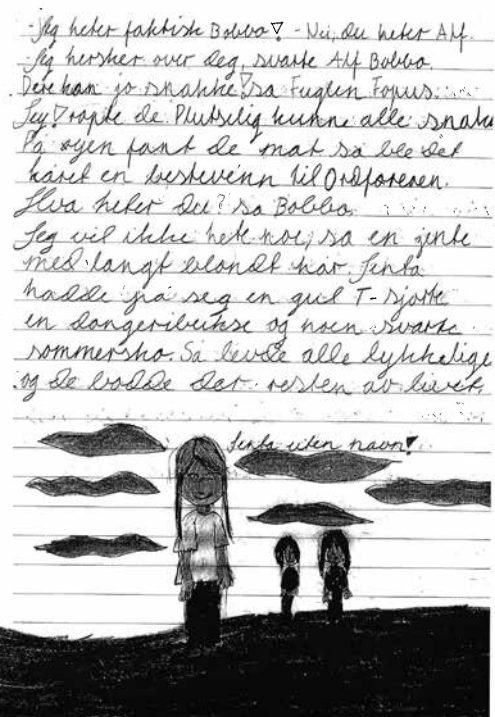 -Jeg heter faktisk Bobbo! - Nei, du heter Alf.
-Jeg hersker over deg, svarte Alf Bobbo.
Dere kan jo snakke! sa Fuglen Fopus.
Jey! ropte de Plutselig kunne alle snakke
På øyen fant de mat så ble det
kåret en bestevenn til Ordføreren.
Hva heter du? sa Bobbo.
Jeg vil ikke hete noe, sa en jente
med langt blondt hår. Jenta
hadde på seg en gul T-sjorte
en dongeribukse og noen svarte
sommersko. Så levde alle lykkelige
og de bodde der resten av livet.
Jenta uten navn!